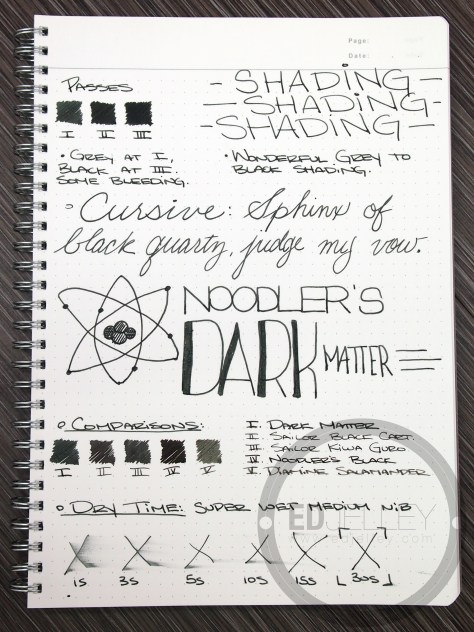 Page:
Date:
PASSES
- SHADING -
- SHADING -
- SHADING -
I II III
• GREY AT I,
BLACK AT III.
SOME BLEEDING.
• WONDERFUL GREY TO
BLACK SHADING.
Cursive: Sphinx of
black quartz, judge my vow.
NOODLER'S
DARK MATTER
COMPARISONS:
I II III IV V
I. DARK MATTER
II. SAILOR BLACK CART.
III. SAILOR KIWA GURO
IV. NOODLER'S BLACK
V. DIAMINE SALAMANDER
DRY TIME: SUPER WET MEDIUM NIB
1S 3S 5S 10S 15S 30S
EDJELLEY
www.edjelley.com